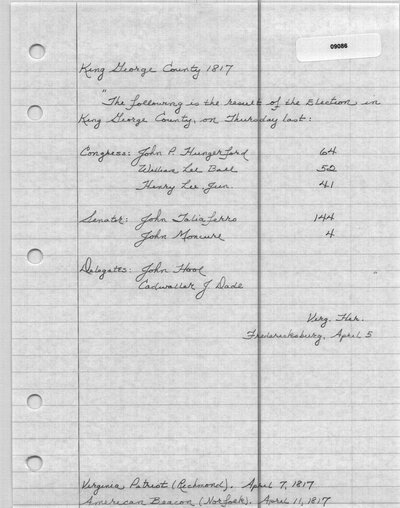 09086
King George County 1817
"The following is the result of the Election in
King George County, on Thursday last:
Congress: John P. Hungerford 64
William Lee Ball 50
Henry Lee Jun. 41
Senator: John Taliaferro 144
John Moncure 4
Delegates: John Hool
Cadwaller J Dade
Virg. Her.
Fredericksburg, April 5
Virginia Patriot (Richmond). April 7, 1817
American Beacon (Norfolk). April 11, 1817